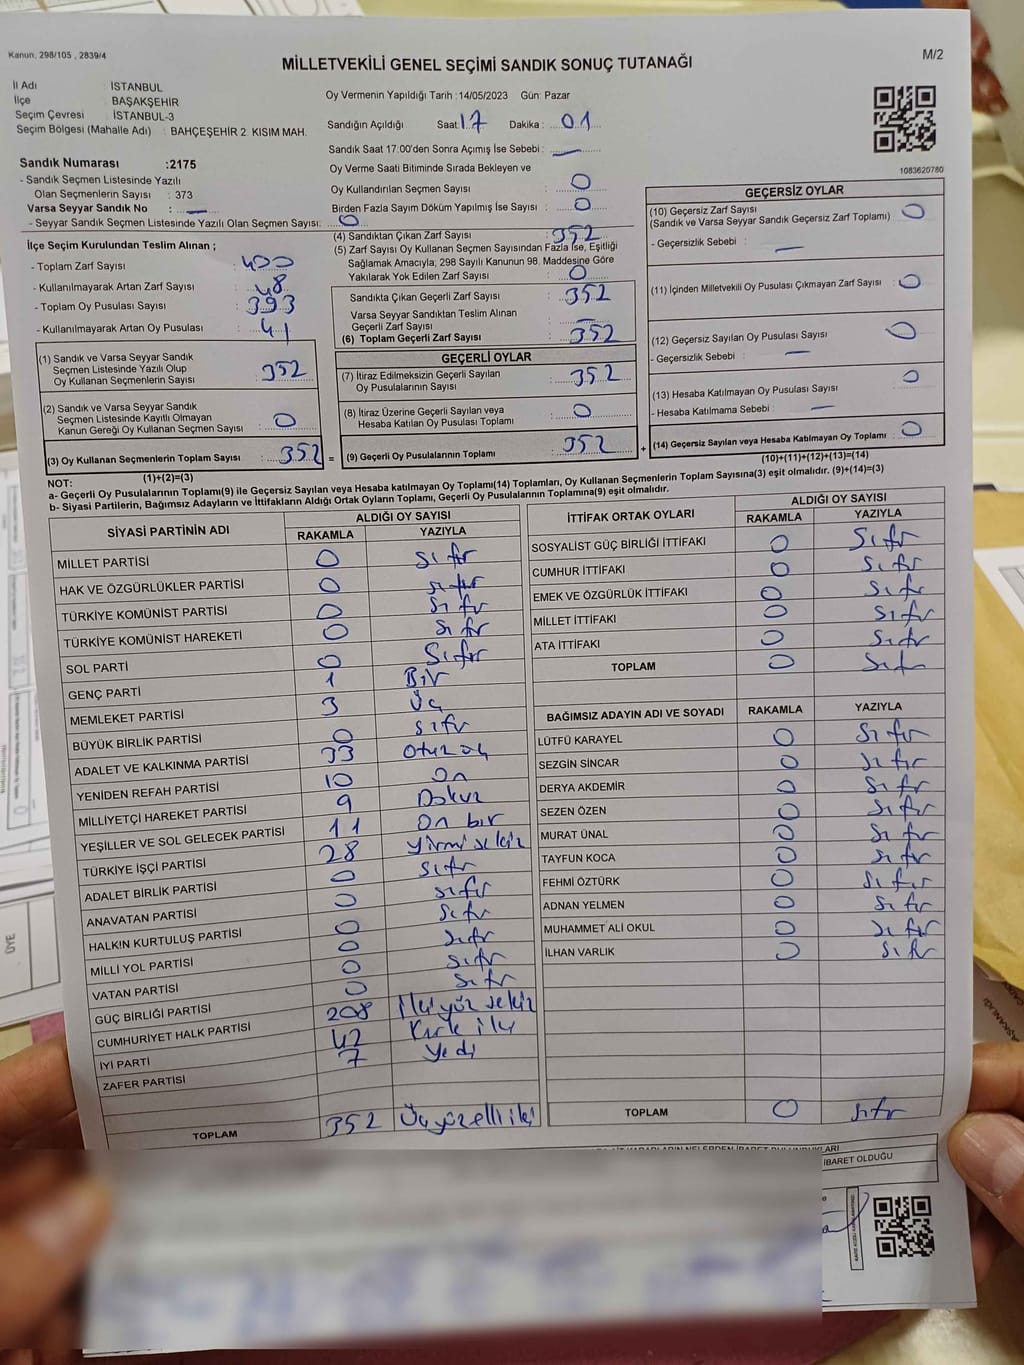 Kanun, 298/105 , 2839/4
MİLLETVEKİLİ GENEL SEÇİMİ SANDIK SONUÇ TUTANAĞI
M/2
İl Adı : İSTANBUL
İlçe : BAŞAKŞEHİR
Seçim Çevresi : İSTANBUL-3
Seçim Bölgesi (Mahalle Adı) : BAHÇEŞEHİR 2. KISIM MAH.
Oy Vermenin Yapıldığı Tarih :14/05/2023 Gün: Pazar
Sandığın Açıldığı Saat: 17 Dakika : 01
Sandık Saat 17:00'den Sonra Açmış İse Sebebi : —
Oy Verme Saati Bitiminde Sırada Bekleyen ve
Oy Kullandırılan Seçmen Sayısı : 0
Birden Fazla Sayım Döküm Yapılmış İse Sayısı : 0
1083620780
Sandık Numarası :2175
- Sandık Seçmen Listesinde Yazılı
Olan Seçmenlerin Sayısı : 373
Varsa Seyyar Sandık No : —
- Seyyar Sandık Seçmen Listesinde Yazılı Olan Seçmen Sayısı: 0
İlçe Seçim Kurulundan Teslim Alınan ;
- Toplam Zarf Sayısı : 400
- Kullanılmayarak Artan Zarf Sayısı : 48
- Toplam Oy Pusulası Sayısı : 393
- Kullanılmayarak Artan Oy Pusulası : 41
(1) Sandık ve Varsa Seyyar Sandık
Seçmen Listesinde Yazılı Olup
Oy Kullanan Seçmenlerin Sayısı : 352
(2) Sandık ve Varsa Seyyar Sandık
Seçmen Listesinde Kayıtlı Olmayan
Kanun Gereği Oy Kullanan Seçmen Sayısı : 0
(3) Oy Kullanan Seçmenlerin Toplam Sayısı : 352 =
(1)+(2)=(3)
(4) Sandıktan Çıkan Zarf Sayısı : 352
(5) Zarf Sayısı Oy Kullanan Seçmen Sayısından Fazla İse, Eşitliği
Sağlamak Amacıyla; 298 Sayılı Kanunun 98. Maddesine Göre
Yakılarak Yok Edilen Zarf Sayısı : 0
Sandıkta Çıkan Geçerli Zarf Sayısı : 352
Varsa Seyyar Sandıktan Teslim Alınan
Geçerli Zarf Sayısı : —
(6) Toplam Geçerli Zarf Sayısı : 352
GEÇERLİ OYLAR
(7) İtiraz Edilmeksizin Geçerli Sayılan
Oy Pusulalarının Sayısı : 352
(8) İtiraz Üzerine Geçerli Sayılan veya
Hesaba Katılan Oy Pusulası Toplamı : 0
(9) Geçerli Oy Pusulalarının Toplamı : 352 +
GEÇERSİZ OYLAR
(10) Geçersiz Zarf Sayısı : 0
(Sandık ve Varsa Seyyar Sandık Geçersiz Zarf Toplamı)
- Geçersizlik Sebebi : —
(11) İçinden Milletvekili Oy Pusulası Çıkmayan Zarf Sayısı : 0
(12) Geçersiz Sayılan Oy Pusulası Sayısı : 0
- Geçersizlik Sebebi : —
(13) Hesaba Katılmayan Oy Pusulası Sayısı : 0
- Hesaba Katılmama Sebebi : —
(14) Geçersiz Sayılan veya Hesaba Katılmayan Oy Toplamı : 0
(10)+(11)+(12)+(13)=(14)
NOT:
a- Geçerli Oy Pusulalarının Toplamı(9) ile Geçersiz Sayılan veya Hesaba katılmayan Oy Toplamı(14) Toplamları, Oy Kullanan Seçmenlerin Toplam Sayısına(3) eşit olmalıdır. (9)+(14)=(3)
b- Siyasi Partilerin, Bağımsız Adayların ve İttifakların Aldığı Ortak Oyların Toplamı, Geçerli Oy Pusulalarının Toplamına(9) eşit olmalıdır.
SİYASİ PARTİNİN ADI ALDIĞI OY SAYISI
RAKAMLA YAZIYLA
MİLLET PARTİSİ 0 Sıfır
HAK VE ÖZGÜRLÜKLER PARTİSİ 0 Sıfır
TÜRKİYE KOMÜNİST PARTİSİ 0 Sıfır
TÜRKİYE KOMÜNİST HAREKETİ 0 Sıfır
SOL PARTİ 0 Sıfır
GENÇ PARTİ 1 Bir
MEMLEKET PARTİSİ 3 Üç
BÜYÜK BİRLİK PARTİSİ 0 Sıfır
ADALET VE KALKINMA PARTİSİ 33 Otuz üç
YENİDEN REFAH PARTİSİ 10 On
MİLLİYETÇİ HAREKET PARTİSİ 9 Dokuz
YEŞİLLER VE SOL GELECEK PARTİSİ 11 On bir
TÜRKİYE İŞÇİ PARTİSİ 28 Yirmi sekiz
ADALET BİRLİK PARTİSİ 0 Sıfır
ANAVATAN PARTİSİ 0 Sıfır
HALKIN KURTULUŞ PARTİSİ 0 Sıfır
MİLLİ YOL PARTİSİ 0 Sıfır
VATAN PARTİSİ 0 Sıfır
GÜÇ BİRLİĞİ PARTİSİ 0 Sıfır
CUMHURİYET HALK PARTİSİ 208 İkiyüz sekiz
İYİ PARTİ 42 Kırk iki
ZAFER PARTİSİ 7 Yedi
TOPLAM 352 Üçyüzelli iki
İTTİFAK ORTAK OYLARI ALDIĞI OY SAYISI
RAKAMLA YAZIYLA
SOSYALİST GÜÇ BİRLİĞİ İTTİFAKI 0 Sıfır
CUMHUR İTTİFAKI 0 Sıfır
EMEK VE ÖZGÜRLÜK İTTİFAKI 0 Sıfır
MİLLET İTTİFAKI 0 Sıfır
ATA İTTİFAKI 0 Sıfır
TOPLAM 0 Sıfır
BAĞIMSIZ ADAYIN ADI VE SOYADI RAKAMLA YAZIYLA
LÜTFÜ KARAYEL 0 Sıfır
SEZGİN SİNCAR 0 Sıfır
DERYA AKDEMİR 0 Sıfır
SEZEN ÖZEN 0 Sıfır
MURAT ÜNAL 0 Sıfır
TAYFUN KOCA 0 Sıfır
FEHMİ ÖZTÜRK 0 Sıfır
ADNAN YELMEN 0 Sıfır
MUHAMMET ALİ OKUL 0 Sıfır
İLHAN VARLIK 0 Sıfır
TOPLAM 0 Sıfır
İBARET OLDUĞU
ÜYE